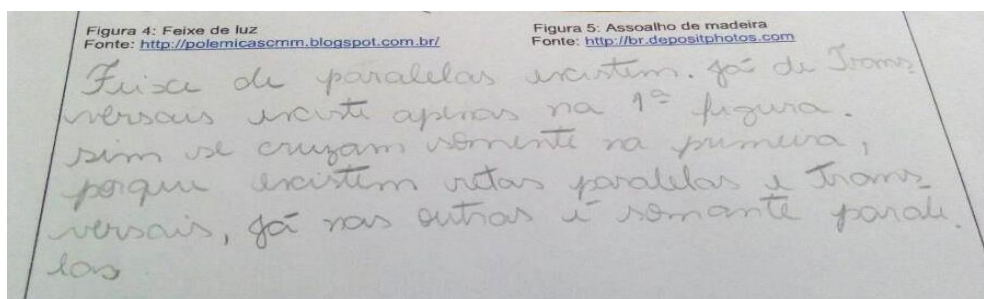 Figura 4: Feixe de luz
Fonte: http://polemicascmm.blogspot.com.br/
Figura 5: Assoalho de madeira
Fonte: http://br.depositphotos.com
Feixe de paralelas existem. Já de Trans-
versais existe apenas na 1ª figura.
sim se cruzam somente na primeira,
porque existem retas paralelas e Trans-
versais, Já nas outras é somante parale
las